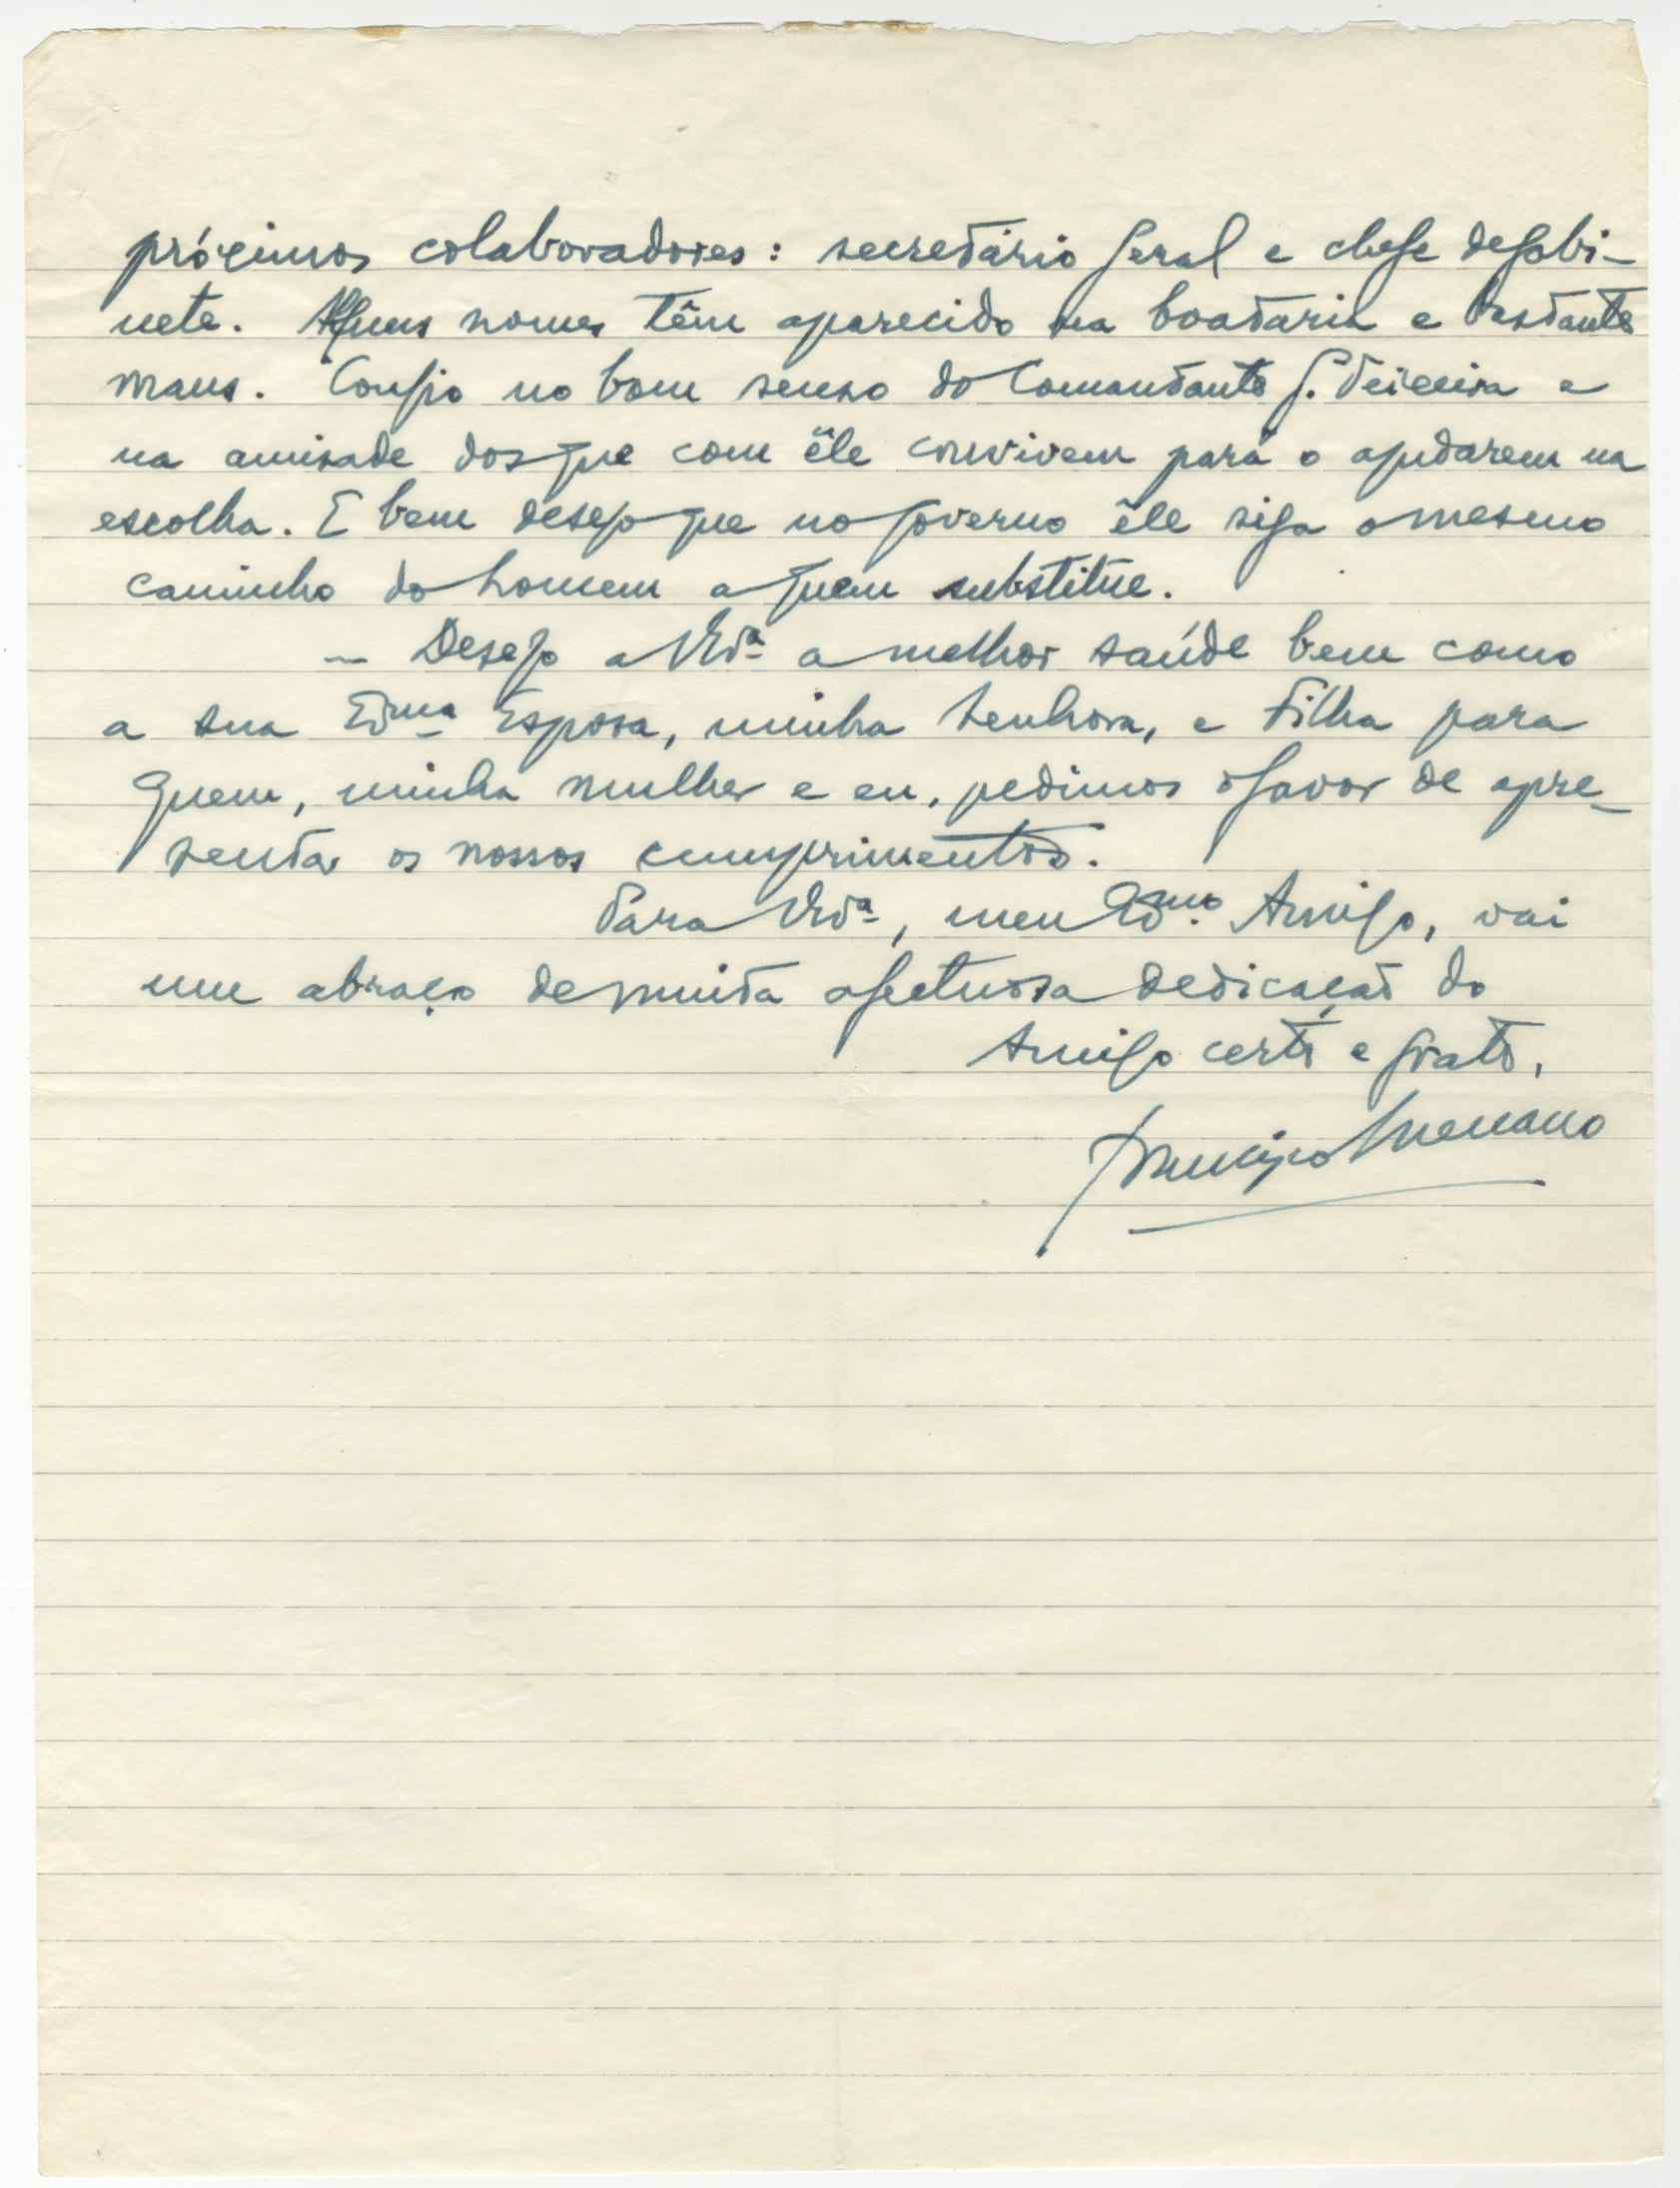 próximos colaboradores: secretário geral e chefe de gabi-
nete. Alguns nomes têm aparecido na boataria e bastante
maus. Confio no bom senso do Comandante G. Teixeira e
na amisade dos que com êle convivem para o ajudarem na
escolha. E bem desejo que no governo êle siga o mesmo
caminho do homem a quem substitúe.
— Desejo a V. Exª a melhor saúde bem como
a sua Exma Esposa, minha Senhora, e Filha para
quem, minha mulher e eu, pedimos o favor de apre-
sentar os nossos cumprimentos.
Para V. Exª, meu Exmo. Amigo, vai
um abraço de muita afectuosa dedicação do
Amigo certo e grato,